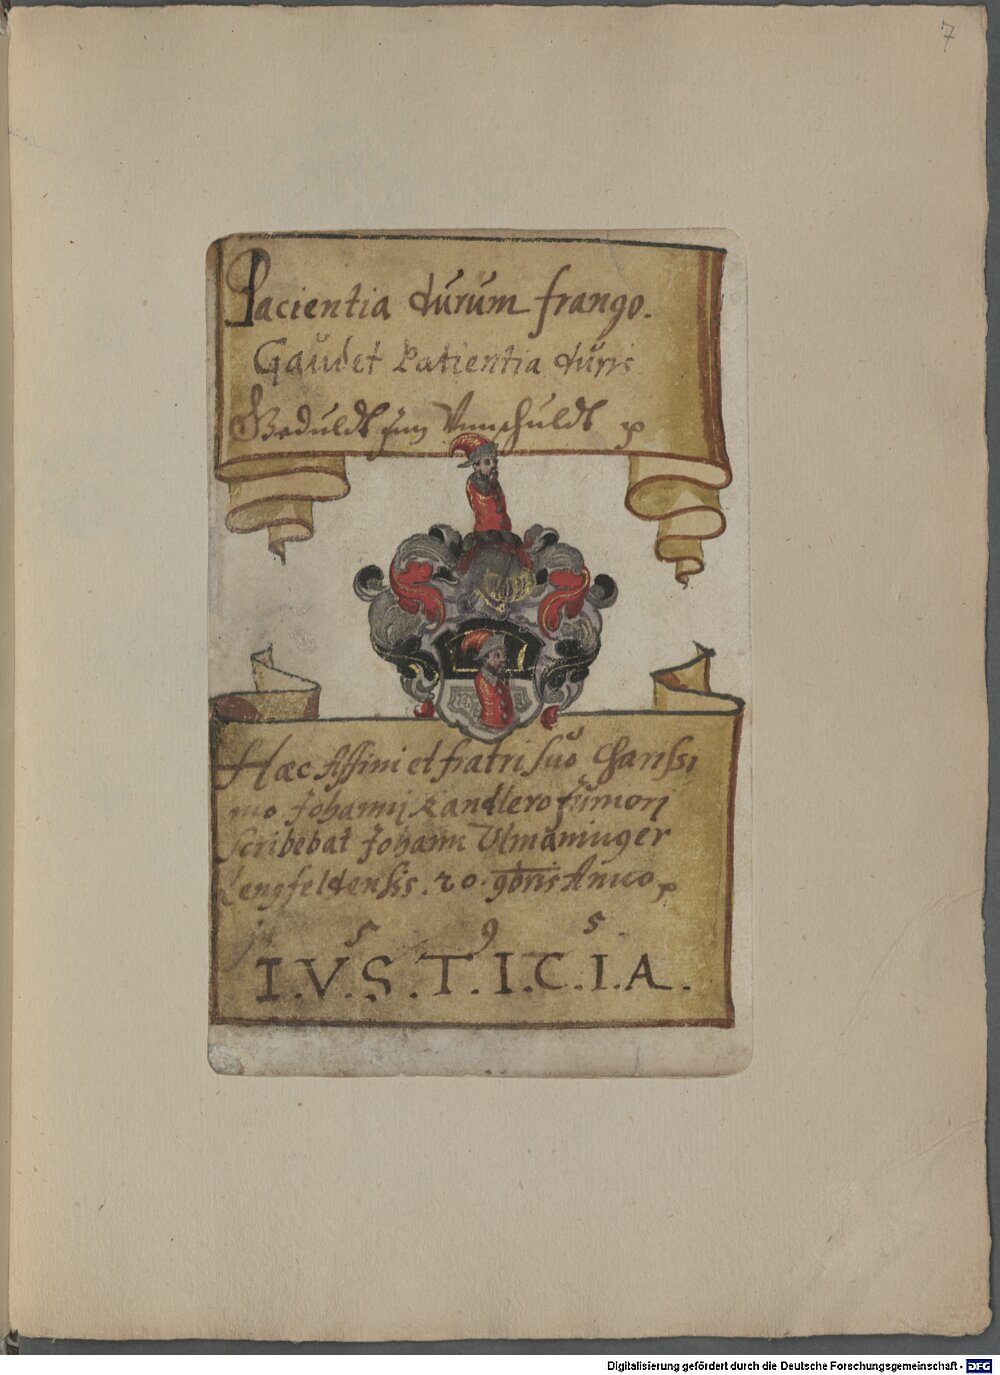 7
Pacientia durum frango.
Gaudet Patientia duris
Geduldt jnn Vnnschuldt
Hæc Affini et fratri suo Charissi
mo Johannj Kandlero Juniorj
scribebat Johann Vlmaninger
Lengfeldensis. 20. 9bris Anno
5 9 5.
I.V.S.T.I.C.I.A.
Digitalisierung gefördert durch die Deutsche Forschungsgemeinschaft - DFG